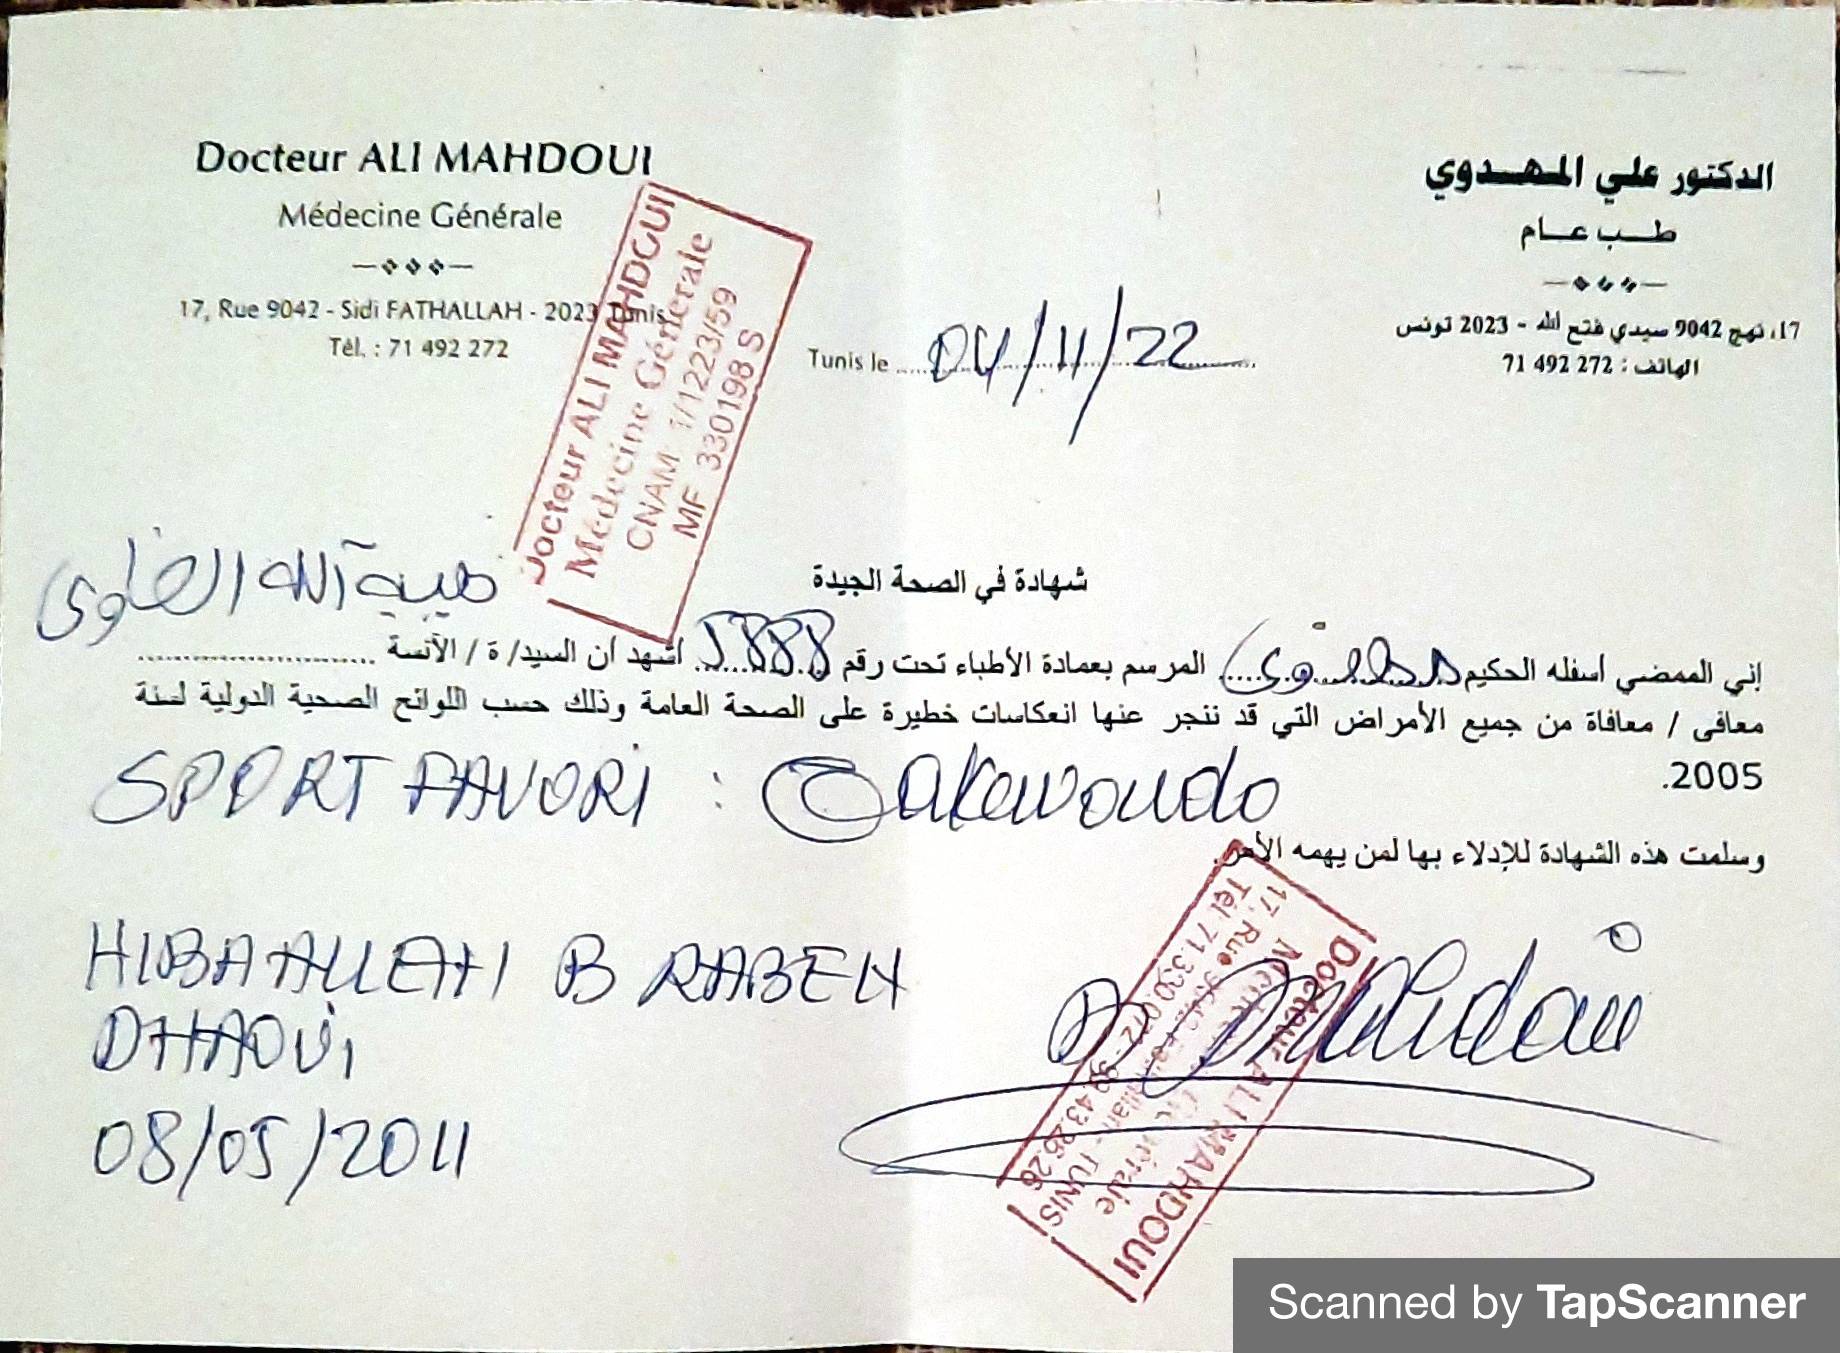 Docteur ALI MAHDOUI
Médecine Générale
17, Rue 9042 - Sidi FATHALLAH - 2023 Tunis
Tél. : 71 492 272
الدكتور علي المهدوي
طب عام
17، نهج 9042 سيدي فتح الله - 2023 تونس
الهاتف : 272 492 71
Docteur ALI MAHDOUI
Médecine Générale
CNAM 1/1223/59
MF 330198 S
Tunis le 04/11/22
شهادة في الصحة الجيدة
هيبة الله الضاوي
إني الممضي أسفله الحكيم المرسم بعمادة الأطباء تحت رقم 5888 أشهد أن السيد/ ة / الآنسة
معافى / معافاة من جميع الأمراض التي قد ننجر عنها انعكاسات خطيرة على الصحة العامة وذلك حسب اللوائح الصحية الدولية لسنة
2005.
SPORT FAVORI : Takewondo
وسلمت هذه الشهادة للإدلاء بها لمن يهمه الأمر.
HIBAALLAH B RABEH
DHAOUI
08/05/2011
Docteur ALI MAHDOUI
Médecine Générale
17, Rue 9042 - TUNIS
Tél: 71.390.072 - 99.43.26.26
Scanned by TapScanner